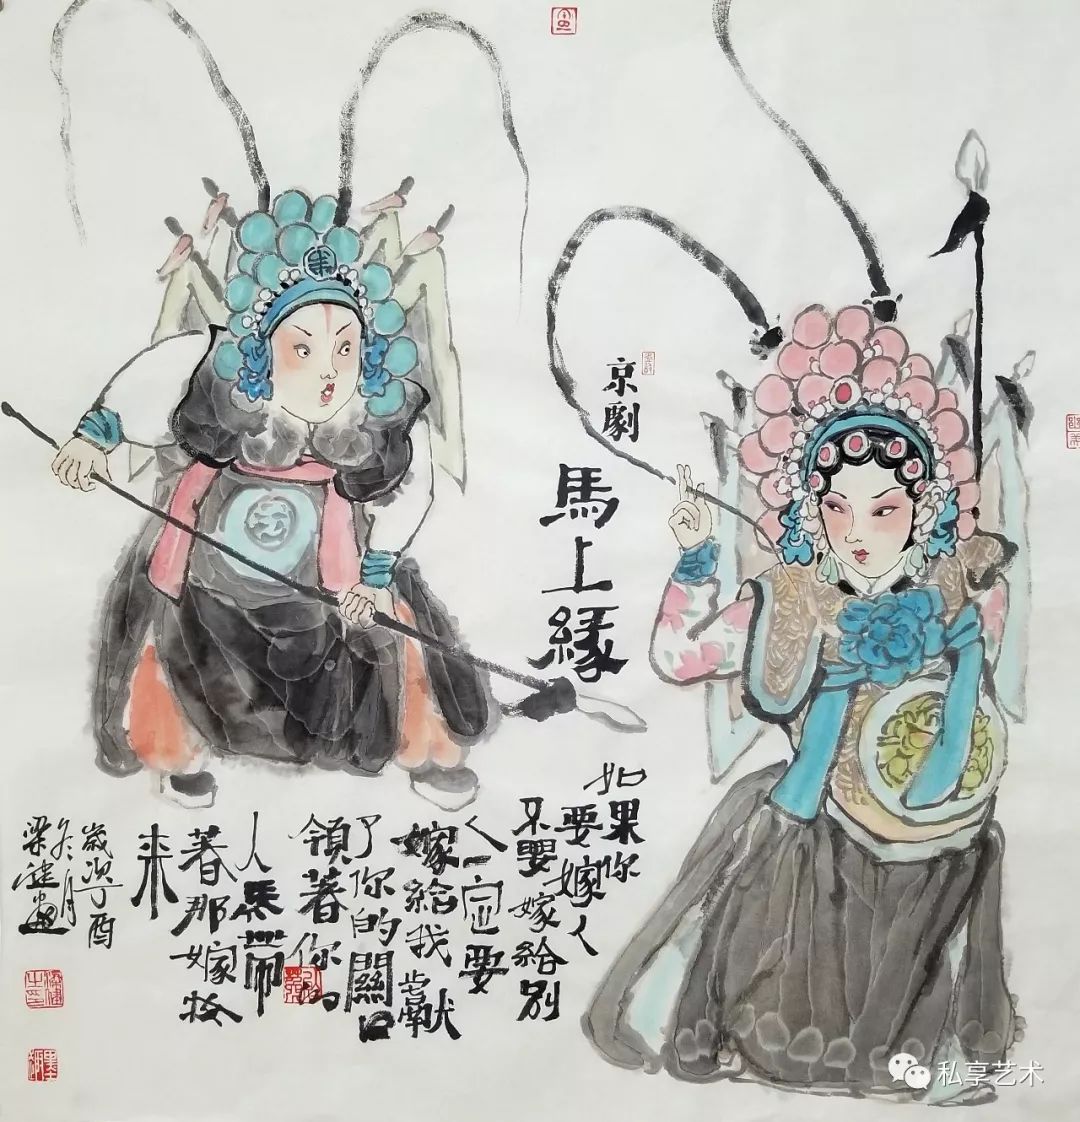 京劇
馬上緣
如果你
要嫁人
不要嫁給別
人一定要
嫁給我獻
了你的關口
領著你的
人馬帶
著那嫁妝
来
歲次丁酉
冬月
梁健畫
私享艺术